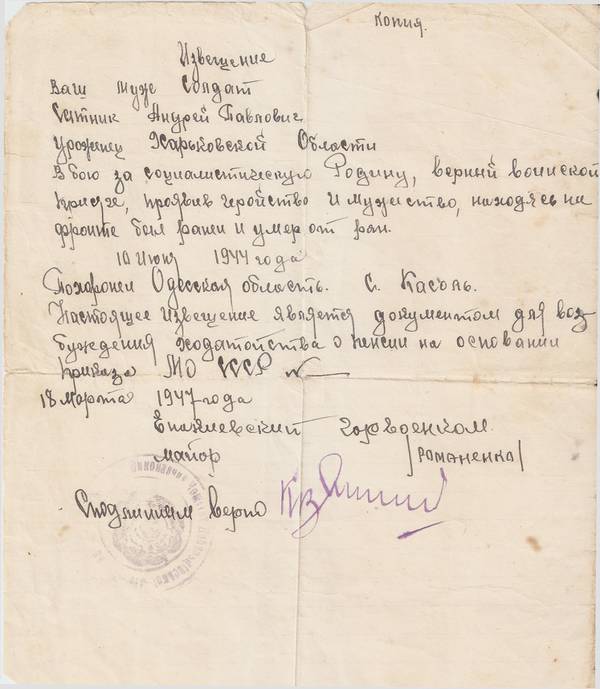 Копия.
Извещение
Ваш муж Солдат
Сытник Андрей Павлович
Уроженец Харьковской Области
В бою за социалистическую Родину, верный воинской
присяге, проявив геройство и мужество, находясь на
фронте был ранен и умер от ран.
10 Июня 1944 года
Похоронен Одесская область. с. Касоль.
Настоящее Извещение является документом для воз
буждения ходатайства о пенсии на основании
приказа МО СССР №
18 марта 1947 года
Енакиевский горвоенком
майор /Романенко/
С подлинным верно